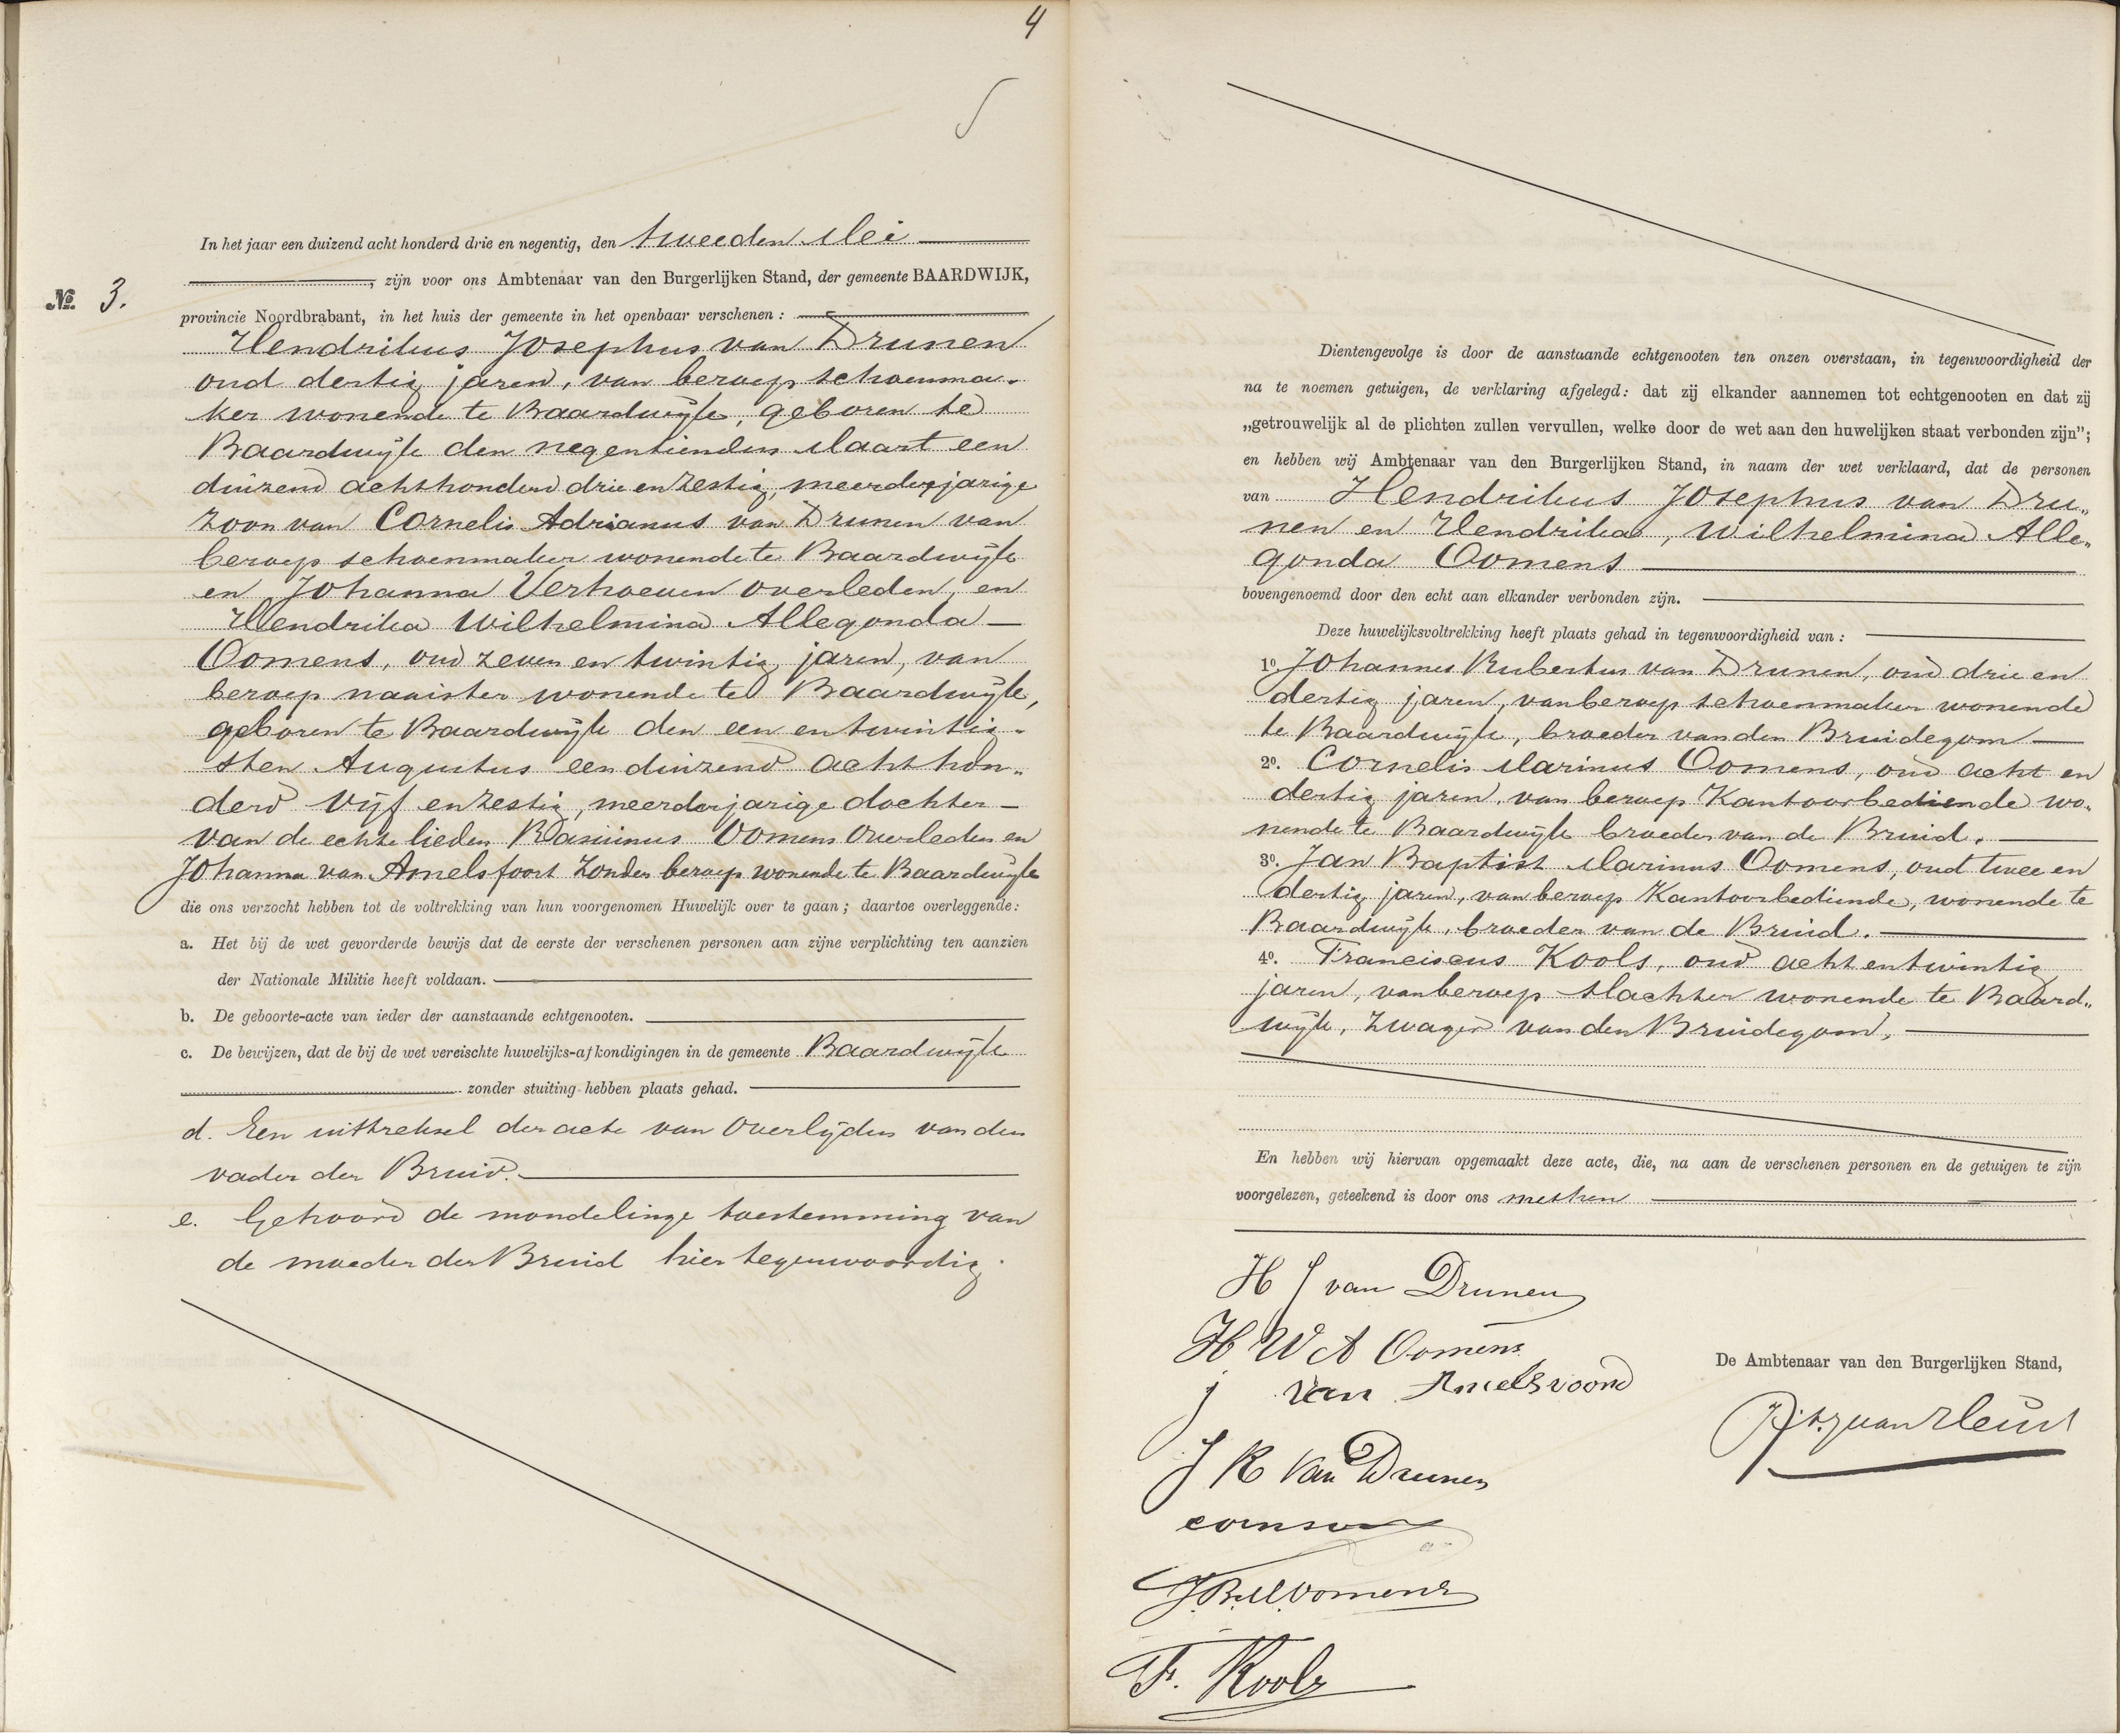 4
№ 3.
In het jaar een duizend acht honderd drie en negentig, den tweeden Mei
, zijn voor ons Ambtenaar van den Burgerlijken Stand, der gemeente BAARDWIJK,
provincie Noordbrabant, in het huis der gemeente in het openbaar verschenen :
Hendrikus Josephus van Drunen
oud dertig jaren, van beroep schoenma-
ker wonende te Baardwijk, geboren te
Baardwijk den negentienden Maart een
duizend achthonderd drie en zestig, meerderjarige
zoon van Cornelis Adrianus van Drunen van
beroep schoenmaker wonende te Baardwijk
en Johanna Verhoeven overleden, en
Hendrika Wilhelmina Allegonda
Oomens, oud zeven en twintig jaren, van
beroep naaister wonende te Baardwijk,
geboren te Baardwijk den een en twintig-
sten Augustus eenduizend achthon„
derd vijf en zestig, meerderjarige dochter
van de echte lieden Oomens Overleden en
Johanna van Amelsfoort zonder beroep wonende te Baardwijk
die ons verzocht hebben tot de voltrekking van hun voorgenomen Huwelijk over te gaan ; daartoe overleggende :
a. Het bij de wet gevorderde bewijs dat de eerste der verschenen personen aan zijne verplichting ten aanzien
der Nationale Militie heeft voldaan.
b. De geboorte-acte van ieder der aanstaande echtgenooten.
c. De bewijzen, dat de bij de wet vereischte huwelijks-afkondigingen in de gemeente Baardwijk
zonder stuiting hebben plaats gehad.
d. Een uittreksel der acte van Overlijden van den
vader der Bruid.
e. Gehoord de mondelinge toestemming van
de moeder der Bruid hier tegenwoordig.
Dientengevolge is door de aanstaande echtgenooten ten onzen overstaan, in tegenwoordigheid der
na te noemen getuigen, de verklaring afgelegd : dat zij elkander aannemen tot echtgenooten en dat zij
„getrouwelijk al de plichten zullen vervullen, welke door de wet aan den huwelijken staat verbonden zijn”;
en hebben wij Ambtenaar van den Burgerlijken Stand, in naam der wet verklaard, dat de personen
van Hendrikus Josephus van Dru„
nen en Hendrika, Wilhelmina Alle„
gonda Oomens
bovengenoemd door den echt aan elkander verbonden zijn.
Deze huwelijksvoltrekking heeft plaats gehad in tegenwoordigheid van :
1º. Johannes Rubertus van Drunen, oud drie en
dertig jaren, van beroep schoenmaker wonende
te Baardwijk, broeder van den Bruidegom
2º. Cornelis Marinus Oomens, oud acht en
dertig jaren, van beroep Kantoorbediende wo„
nende te Baardwijk broeder van de Bruid.
3º. Jan Baptist Marinus Oomens, oud twee en
dertig jaren, van beroep Kantoorbediende, wonende te
Baardwijk, broeder van de Bruid.
4º. Franciscus Kools, oud acht en twintig
jaren, van beroep slachter wonende te Baard„
wijk, zwager van den Bruidegom.
En hebben wij hiervan opgemaakt deze acte, die, na aan de verschenen personen en de getuigen te zijn
voorgelezen, geteekend is door ons met hen
H J van Drunen
H W A Oomens
j van Amelsvoord
De Ambtenaar van den Burgerlijken Stand,
J R van Drunen
J.B.M. Oomens
Fr. Kools